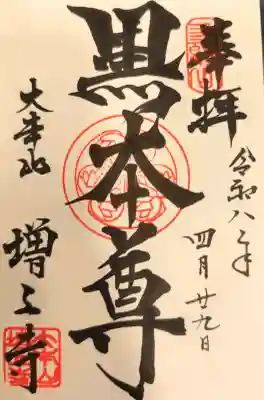 奉拝
令和八年
四月廿九日
黒本尊
大本山
増上寺